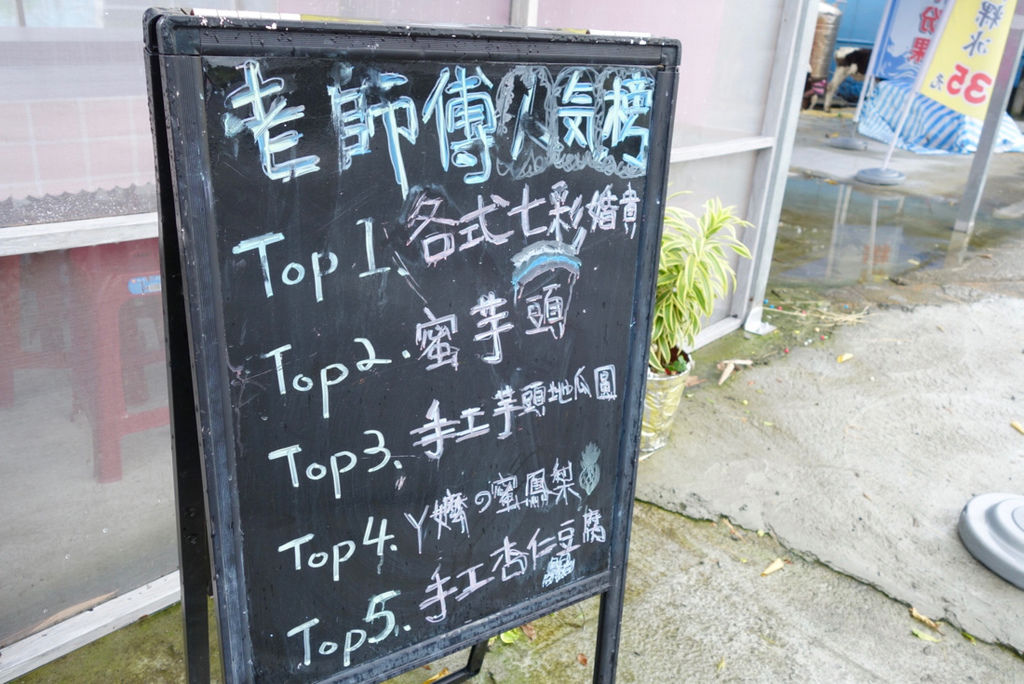 老師傅人気榜
Top 1. 各式七彩
Top 2. 蜜芋頭
Top 3. 手工芋頭地瓜圓
Top 4. ㄚ嬤の蜜鳳梨
Top 5. 手工杏仁豆腐
粿冰
35元
粉粿